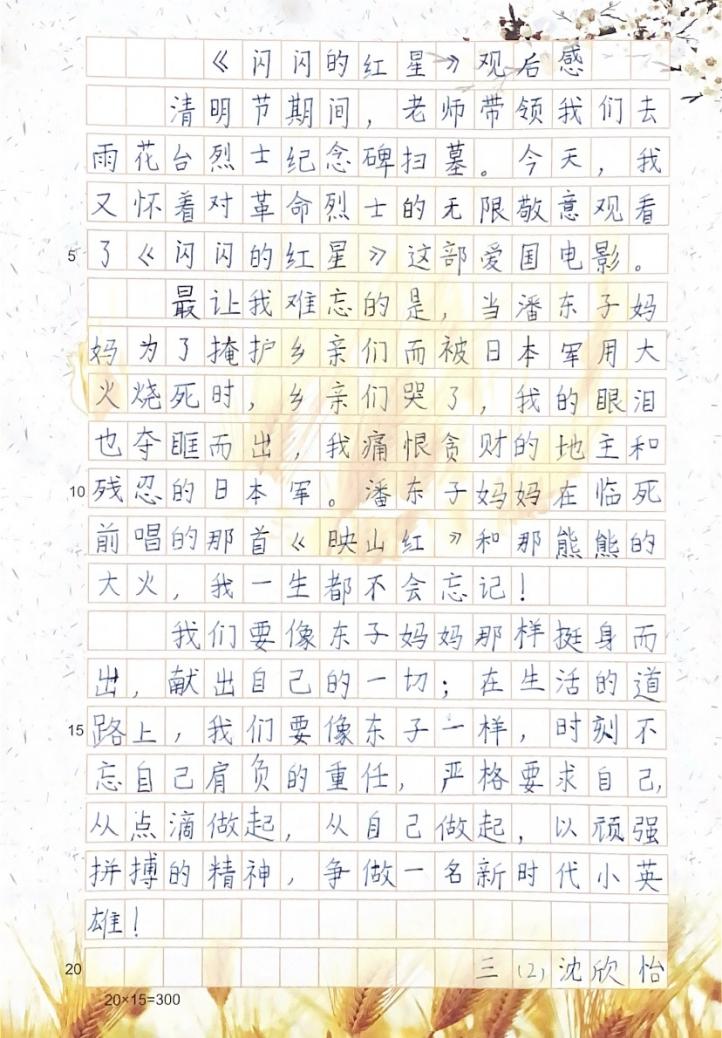 《闪闪的红星》观后感
清明节期间，老师带领我们去
雨花台烈士纪念碑扫墓。今天，我
又怀着对革命烈士的无限敬意观看
5 了《闪闪的红星》这部爱国电影。
最让我难忘的是，当潘东子妈
妈为了掩护乡亲们而被日本军用大
火烧死时，乡亲们哭了，我的眼泪
也夺眶而出，我痛恨贪财的地主和
10 残忍的日本军。潘东子妈妈在临死
前唱的那首《映山红》和那熊熊的
大火，我一生都不会忘记！
我们要像东子妈妈那样挺身而
出，献出自己的一切；在生活的道
15 路上，我们要像东子一样，时刻不
忘自己肩负的重任，严格要求自己，
从点滴做起，从自己做起，以顽强
拼搏的精神，争做一名新时代小英
雄！
20 三（2）沈欣怡
20×15=300